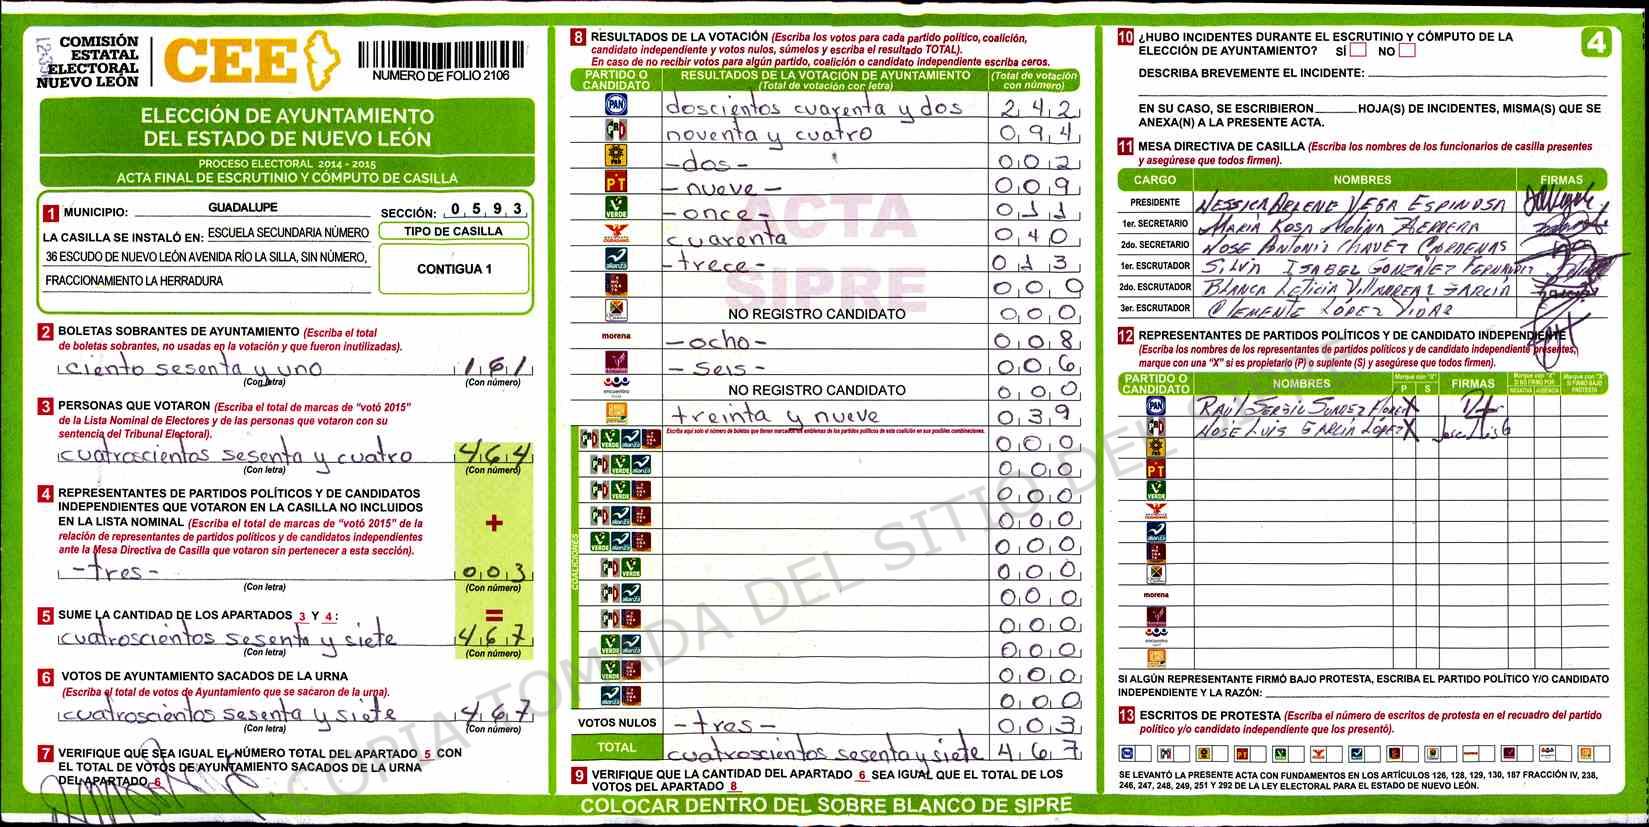 COMISIÓN
ESTATAL
ELECTORAL
NUEVO LEÓN
CEE
NUMERO DE FOLIO 2106
ELECCIÓN DE AYUNTAMIENTO
DEL ESTADO DE NUEVO LEÓN
PROCESO ELECTORAL 2014 - 2015
ACTA FINAL DE ESCRUTINIO Y CÓMPUTO DE CASILLA
1 MUNICIPIO: GUADALUPE SECCIÓN: 0 5 9 3
LA CASILLA SE INSTALÓ EN: ESCUELA SECUNDARIA NÚMERO
36 ESCUDO DE NUEVO LEÓN AVENIDA RÍO LA SILLA, SIN NÚMERO,
FRACCIONAMIENTO LA HERRADURA
TIPO DE CASILLA
CONTIGUA 1
2 BOLETAS SOBRANTES DE AYUNTAMIENTO (Escriba el total
de boletas sobrantes, no usadas en la votación y que fueron inutilizadas).
ciento sesenta y uno 1 6 1
(Con letra) (Con número)
3 PERSONAS QUE VOTARON (Escriba el total de marcas de "votó 2015"
de la Lista Nominal de Electores y de las personas que votaron con su
sentencia del Tribunal Electoral).
cuatroscientos sesenta y cuatro 4 6 4
(Con letra) (Con número)
4 REPRESENTANTES DE PARTIDOS POLÍTICOS Y DE CANDIDATOS
INDEPENDIENTES QUE VOTARON EN LA CASILLA NO INCLUIDOS
EN LA LISTA NOMINAL (Escriba el total de marcas de "votó 2015" de la
relación de representantes de partidos políticos y de candidatos independientes
ante la Mesa Directiva de Casilla que votaron sin pertenecer a esta sección).
+
-tres- 0 0 3
(Con letra) (Con número)
5 SUME LA CANTIDAD DE LOS APARTADOS 3 Y 4 : =
cuatroscientos sesenta y siete 4 6 7
(Con letra) (Con número)
6 VOTOS DE AYUNTAMIENTO SACADOS DE LA URNA
(Escriba el total de votos de Ayuntamiento que se sacaron de la urna).
cuatroscientos sesenta y siete 4 6 7
(Con letra) (Con número)
7 VERIFIQUE QUE SEA IGUAL EL NÚMERO TOTAL DEL APARTADO 5 CON
EL TOTAL DE VOTOS DE AYUNTAMIENTO SACADOS DE LA URNA
DEL APARTADO 6
8 RESULTADOS DE LA VOTACIÓN (Escriba los votos para cada partido político, coalición,
candidato independiente y votos nulos, súmelos y escriba el resultado TOTAL).
En caso de no recibir votos para algún partido, coalición o candidato independiente escriba ceros.
PARTIDO O CANDIDATO RESULTADOS DE LA VOTACIÓN DE AYUNTAMIENTO (Total de votación con letra) (Total de votación con número)
PAN doscientos cuarenta y dos 2 4 2
PRD noventa y cuatro 0 9 4
PRD -dos- 0 0 2
PT -nueve- 0 0 9
VERDE -once- 0 1 1
cuarenta 0 4 0
alianza -trece- 0 1 3
0 0 0
NO REGISTRO CANDIDATO 0 0 0
morena -ocho- 0 0 8
-seis- 0 0 6
encuentro NO REGISTRO CANDIDATO 0 0 0
treinta y nueve 0 3 9
Escriba aquí solo el número de boletas que tienen marcados los emblemas de los partidos políticos de esta coalición en sus posibles combinaciones.
COALICIONES
0 0 0
0 0 0
0 0 0
0 0 0
0 0 0
0 0 0
0 0 0
0 0 0
0 0 0
0 0 0
0 0 0
VOTOS NULOS -tres- 0 0 3
TOTAL cuatroscientos sesenta y siete 4 6 7
9 VERIFIQUE QUE LA CANTIDAD DEL APARTADO 6 SEA IGUAL QUE EL TOTAL DE LOS
VOTOS DEL APARTADO 8
ACTA
SIPRE
COPIA TOMADA DEL SITIO DEL SIPRE
COLOCAR DENTRO DEL SOBRE BLANCO DE SIPRE
10 ¿HUBO INCIDENTES DURANTE EL ESCRUTINIO Y CÓMPUTO DE LA
ELECCIÓN DE AYUNTAMIENTO? SÍ NO
4
DESCRIBA BREVEMENTE EL INCIDENTE:
EN SU CASO, SE ESCRIBIERON HOJA(S) DE INCIDENTES, MISMA(S) QUE SE
ANEXA(N) A LA PRESENTE ACTA.
11 MESA DIRECTIVA DE CASILLA (Escriba los nombres de los funcionarios de casilla presentes
y asegúrese que todos firmen).
CARGO NOMBRES FIRMAS
PRESIDENTE JESSICA ARLENE VEGA ESPINOSA
1er. SECRETARIO MARIA ROSA MOLINA HERRERA
2do. SECRETARIO JOSE ANTONIO CHAVEZ CARDENAS
1er. ESCRUTADOR SILVIA ISABEL GONZALEZ FERNANDEZ
2do. ESCRUTADOR BLANCA LETICIA VILLARREAL GARCIA
3er. ESCRUTADOR CLEMENTE LOPEZ VIDAL
12 REPRESENTANTES DE PARTIDOS POLÍTICOS Y DE CANDIDATO INDEPENDIENTE
(Escriba los nombres de los representantes de partidos políticos y de candidato independiente presentes,
marque con una "X" si es propietario (P) o suplente (S) y asegúrese que todos firmen).
PARTIDO O CANDIDATO NOMBRES Marque con "X" P S FIRMAS Marque con "X" SI NO FIRMÓ POR NEGATIVA AUSENCIA Marque con "X" SI FIRMÓ BAJO PROTESTA
PAN RAUL SERGIO X
JOSE LUIS GARCIA LOPEZ X Jose Luis G
PT
VERDE
alianza
morena
encuentro
SI ALGÚN REPRESENTANTE FIRMÓ BAJO PROTESTA, ESCRIBA EL PARTIDO POLÍTICO Y/O CANDIDATO
INDEPENDIENTE Y LA RAZÓN:
13 ESCRITOS DE PROTESTA (Escriba el número de escritos de protesta en el recuadro del partido
político y/o candidato independiente que los presentó).
SE LEVANTÓ LA PRESENTE ACTA CON FUNDAMENTOS EN LOS ARTÍCULOS 126, 128, 129, 130, 187 FRACCIÓN IV, 238,
246, 247, 248, 249, 251 Y 292 DE LA LEY ELECTORAL PARA EL ESTADO DE NUEVO LEÓN.